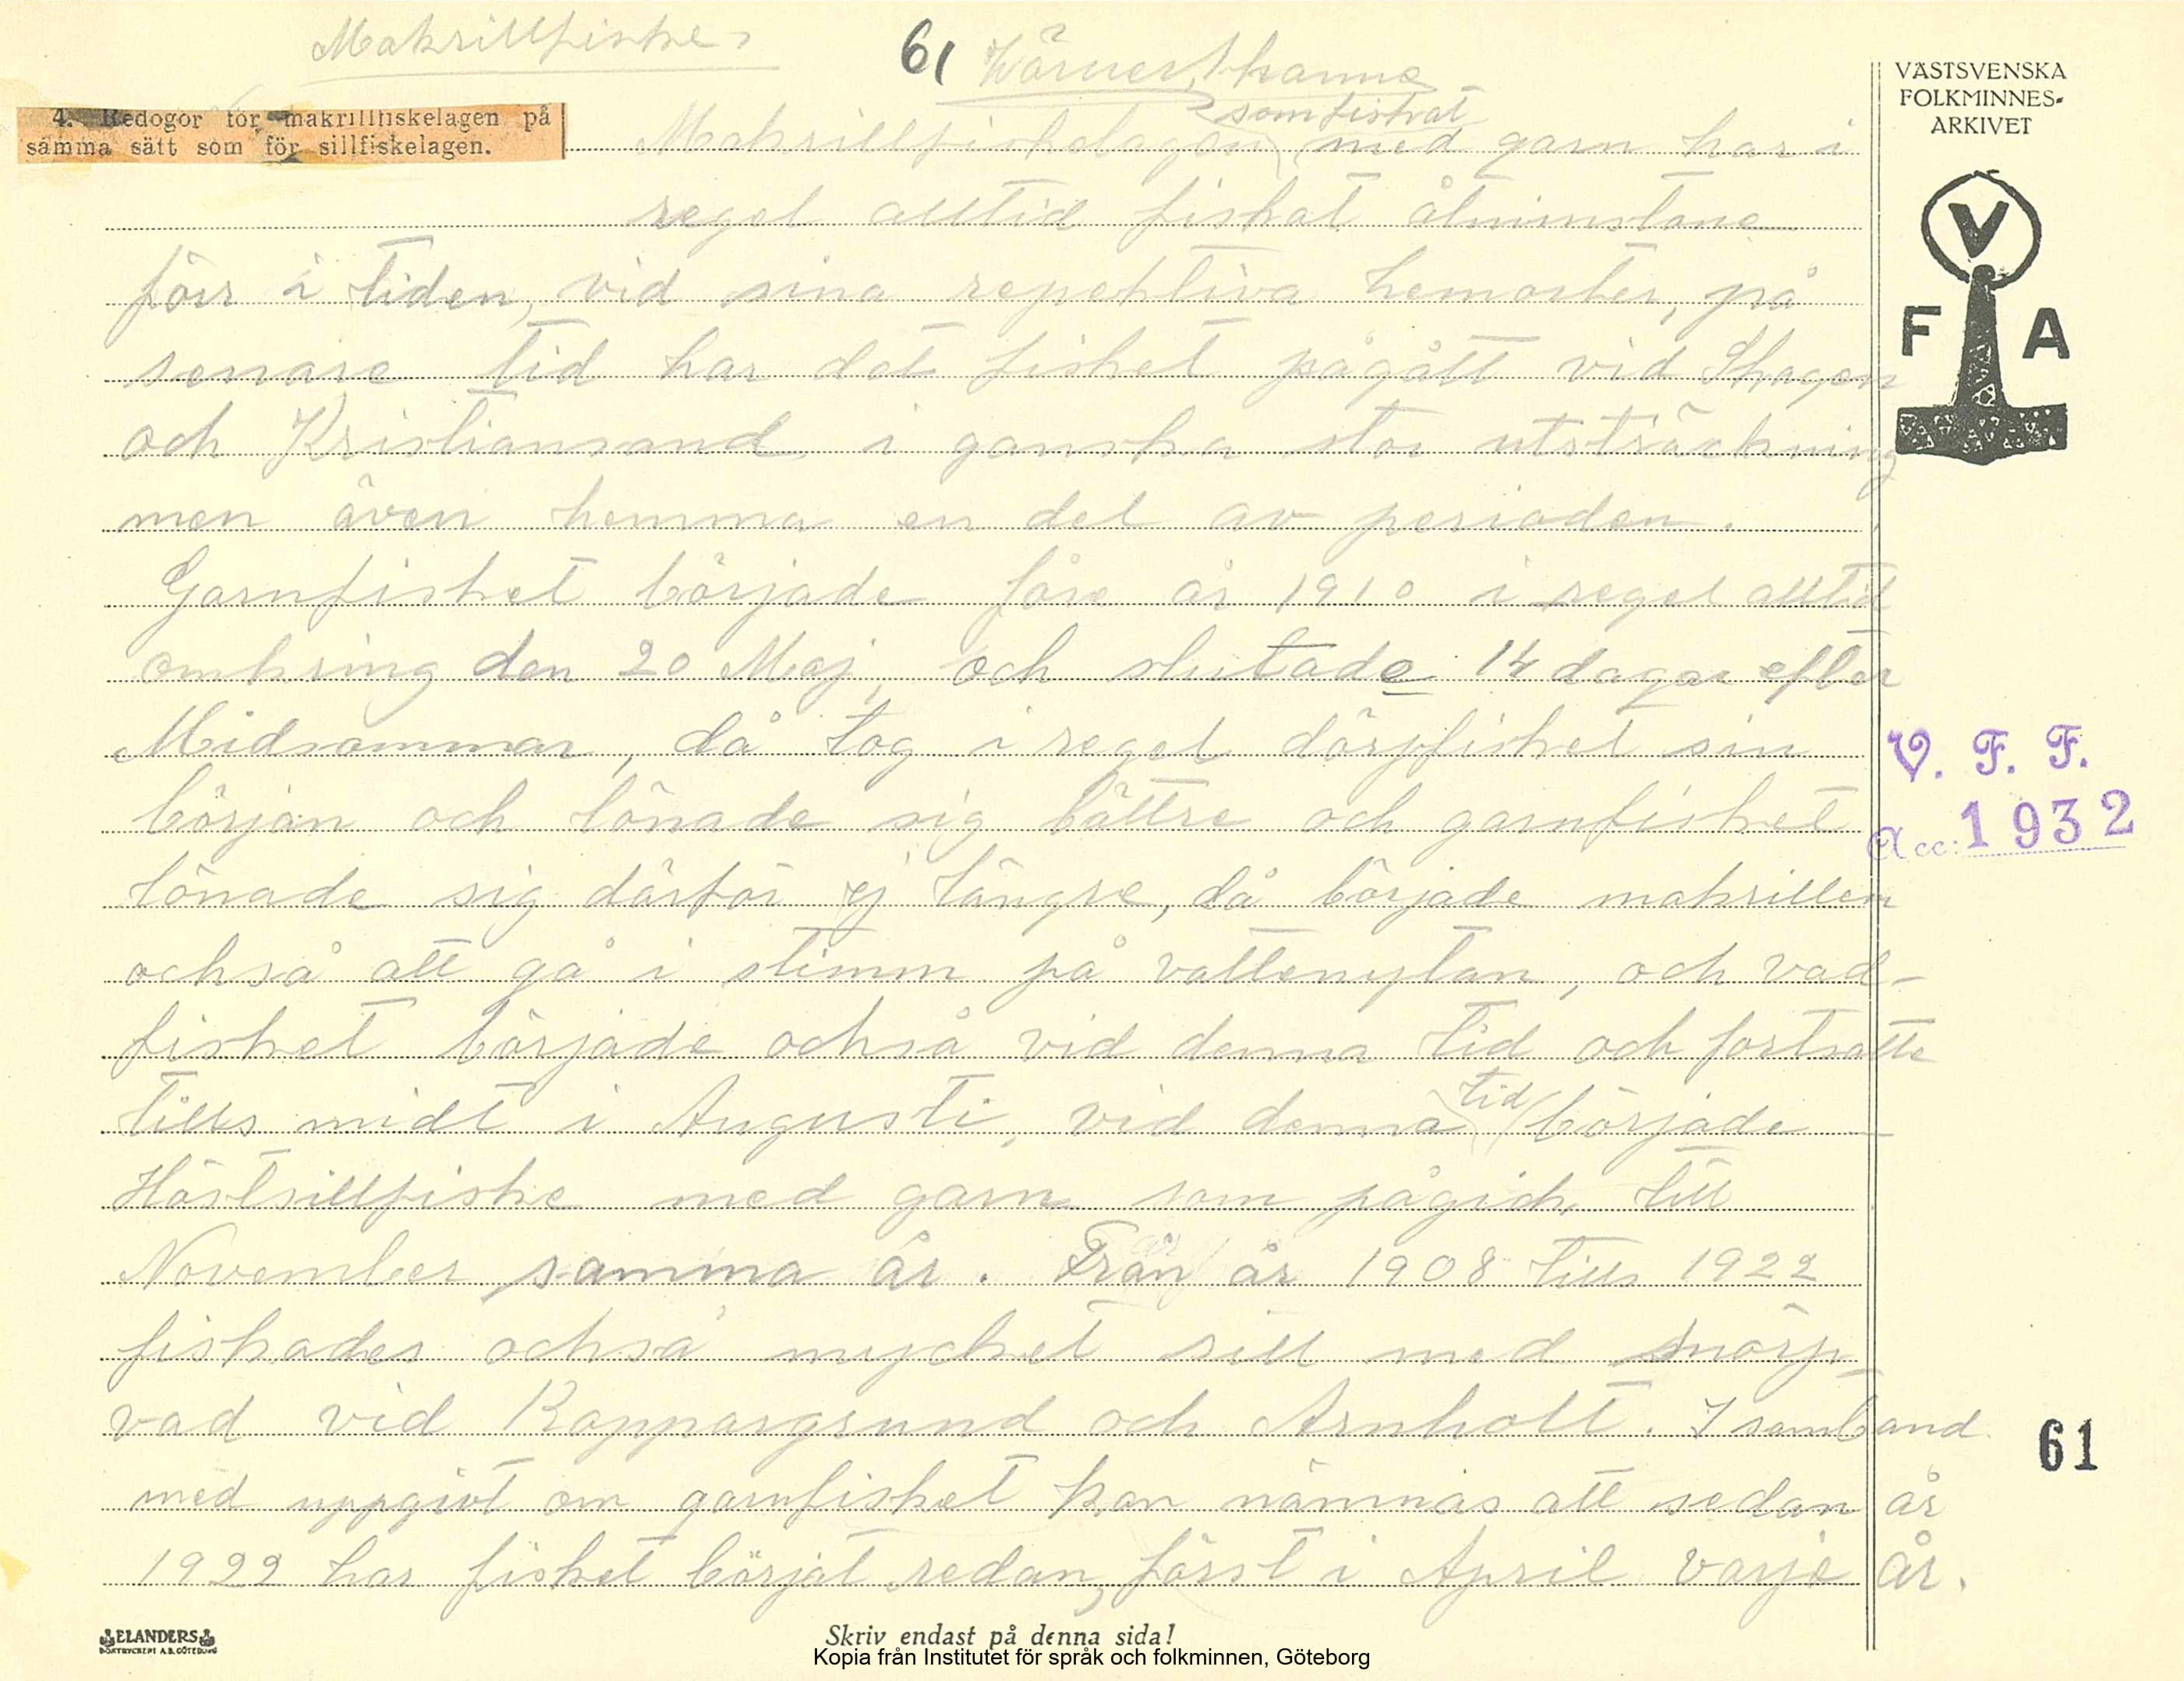 Makrillfiske
61 Wärner, Hamne
VÄSTSVENSKA
FOLKMINNES-
ARKIVET
V
F A
4. Redogör för makrillfiskelagen på
samma sätt som för sillfiskelagen.
somfiskat
Makrillfiskelagen med garn har i
regel alltid fiskat åtminstone
förr i tiden, vid sina repektiva hemorter, på
senare tid har det fisket pågått vid Skagen
och Kristiansand i ganska stor utsträckning
men även hemma en del av perioden.
Garnfisket började före år 1910 i regel alltid
omkring den 20 Maj, och slutade 14 dagar efter
Midsommar, då tog i regel dörjfisket sin
början och lönade sig bättre och garnfisket
lönade sig därför ej längre, då började makrillen
också att gå i stimm på vattenytan, och vad-
fisket började också vid denna tid och fortsatte
tills midt i Augusti, vid denna tid började
Höstsillfiske med garn som pågick till
November samma år. Från år 1908 tills 1922
fiskades också mycket sill med snörp
vad vid Koppargrund och Arnholt. I samband
med uppgivt om garnfisket kan nämnas att sedan år
1922 har fisket börjat redan, först i April varje år.
V. F. F.
Acc: 1932
61
ELANDERS
BOKTRYCKERI A.B. GÖTEBORG
Skriv endast på denna sida!
Kopia från Institutet för språk och folkminnen, Göteborg